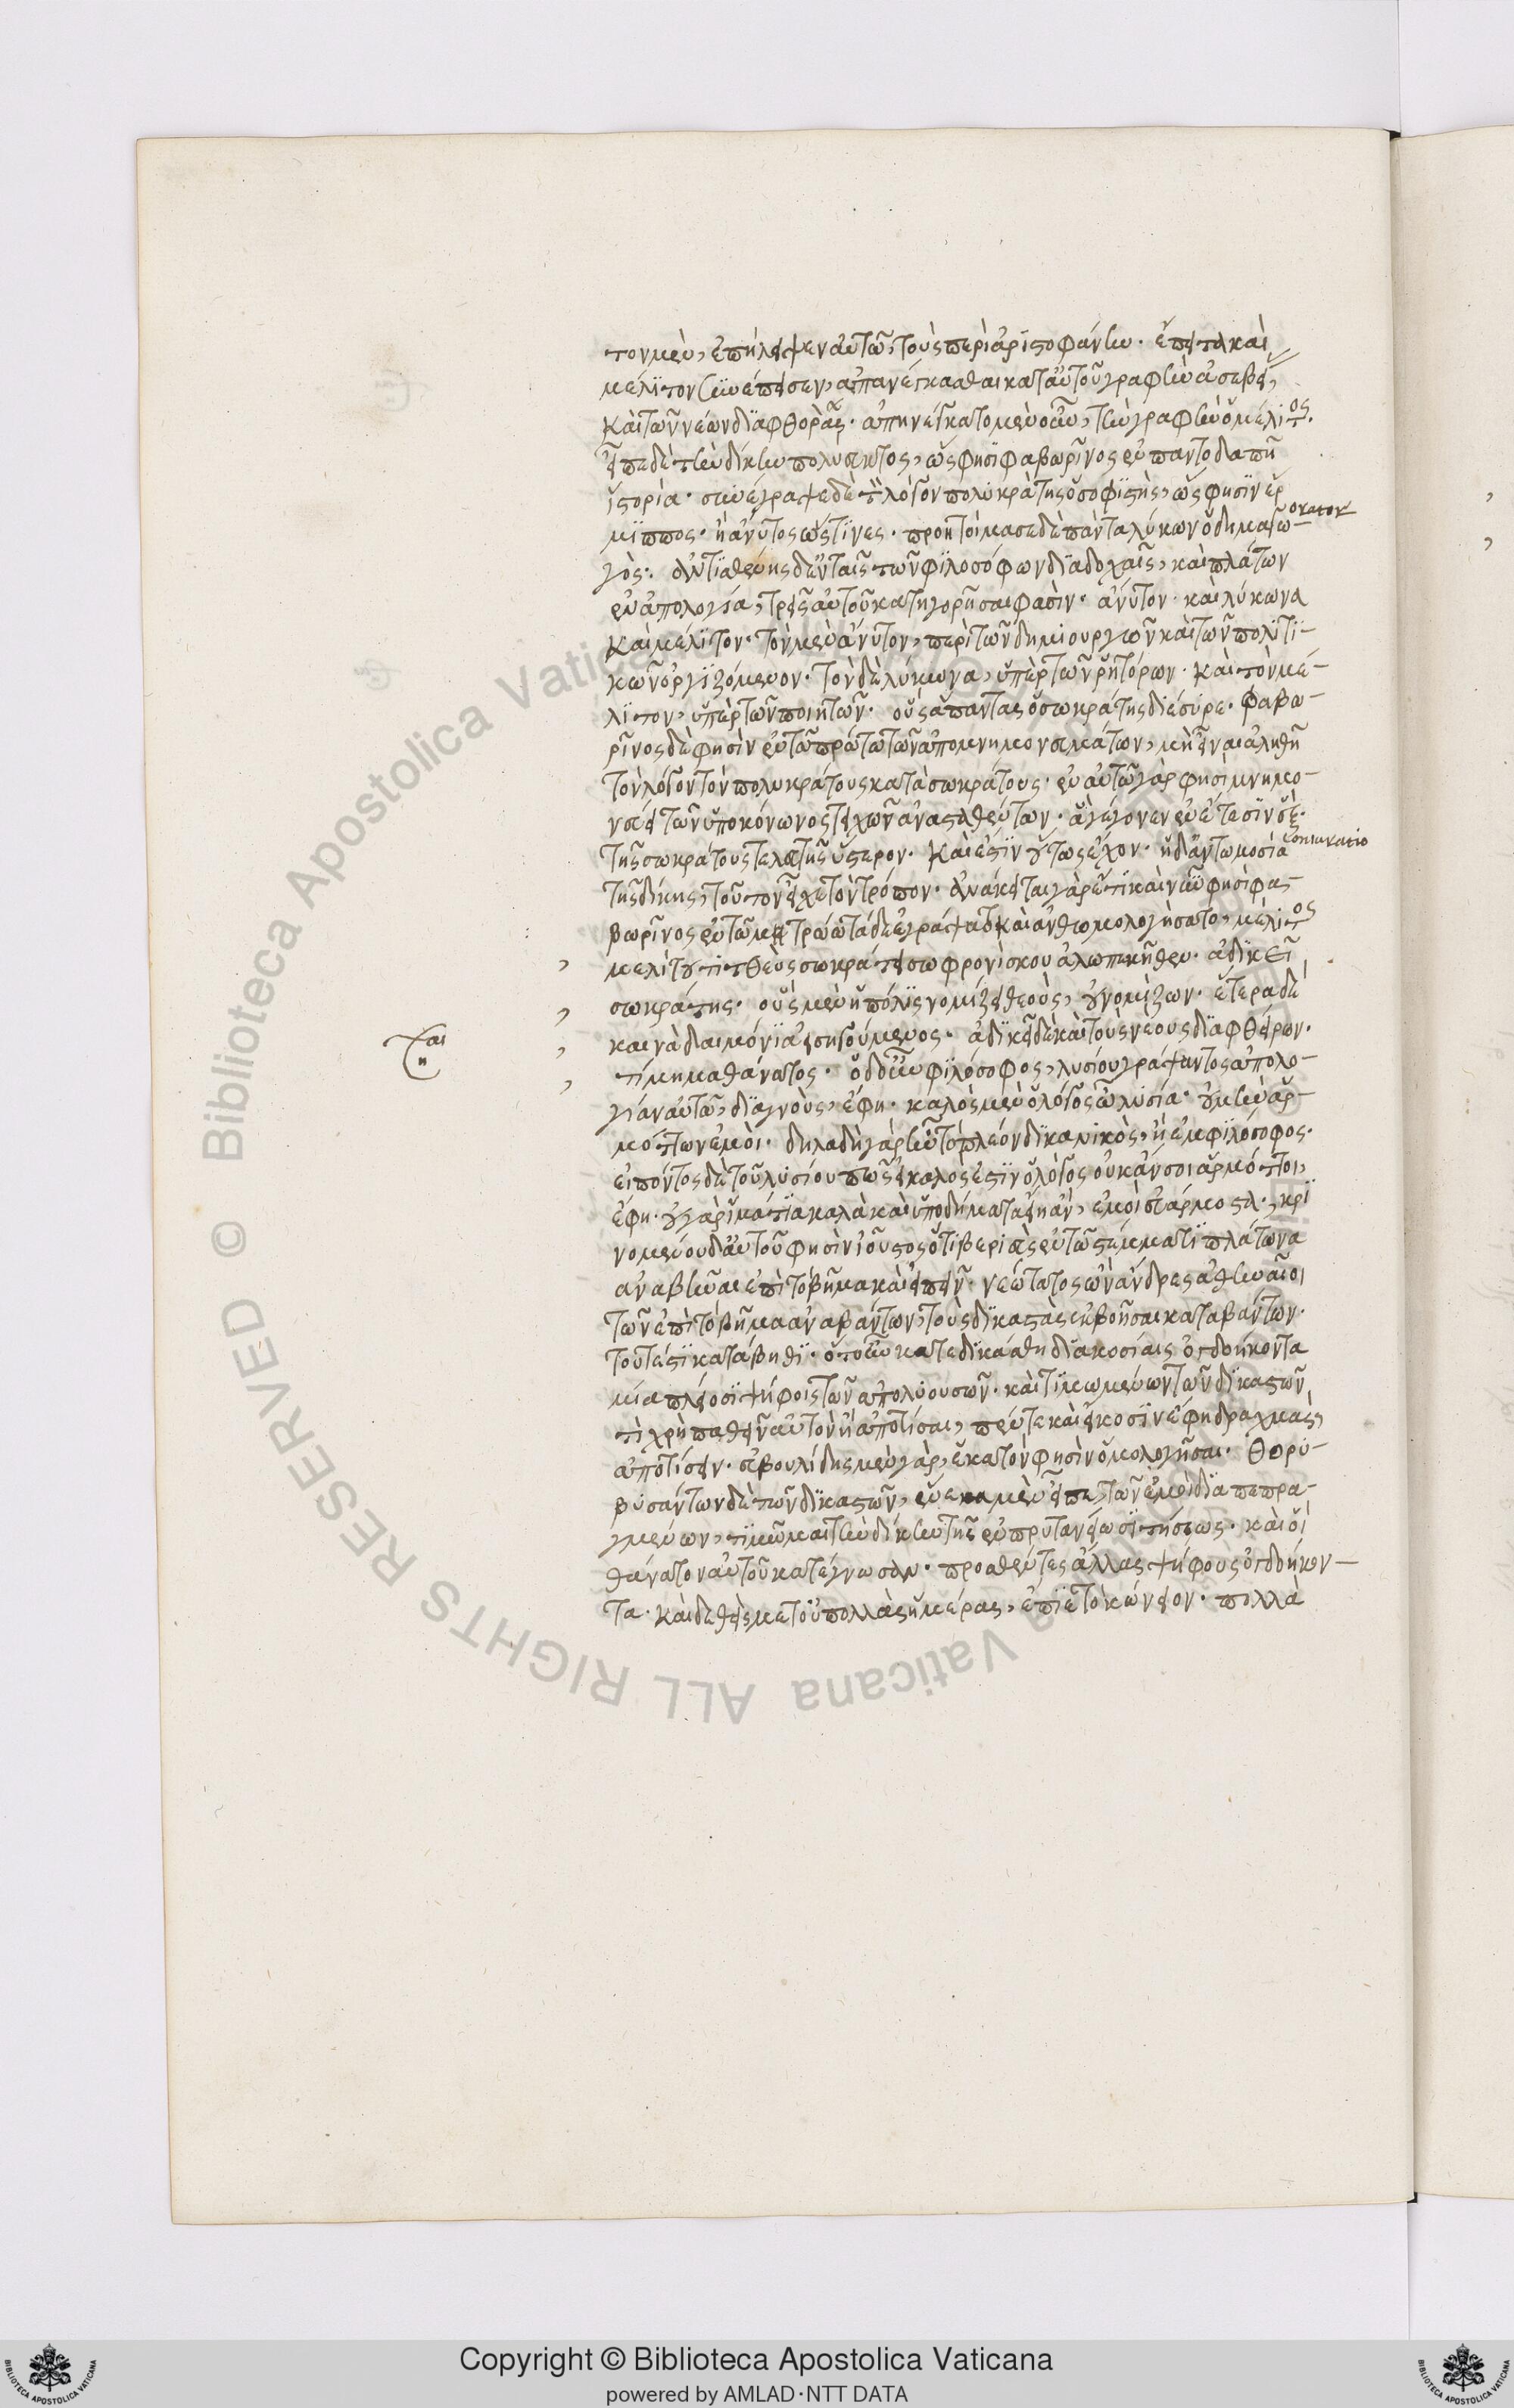 τον μὲν, ἐπήλειψεν αὐτῶ, τοὺς περὶ ἀριστοφάνην. ἔπειτα καὶ
μέλιτον συνέπεισεν, ἀπενέγκασθαι κατ' αὐτοῦ γραφὴν ἀσεβεί,
καὶ τῶν νέων διαφθορᾶς. ἀπηνείγκατο μὲν οὖν, τὴν γραφὴν ὁ μέλιτος.
εἶπε δὲ τὴν δίκην πολύευκτος, ὥς φησι φαβωρῖνος ἐν παντοδαπῆ
ἱστορία. συνέγραψε δὲ τὸν λόγον πολυκράτης ὁ σοφιστὴς, ὥς φησιν ἕρ
μιππος. ἢ ἀνυτος ὥς τινες. προητοίμασε δὲ πάντα λύκων ὁ δημαγω orator
γός. ἀντισθένης δ' ἐν ταῖς τῶν φιλοσόφων διαδοχαῖς, καὶ πλάτων
ἐν ἀπολογία, τρεῖς αὐτοῦ κατηγορῆσαι φασὶν. ἄνυτον. καὶ λύκωνα
καὶ μέλιτον. τὸν μὲν ἄνυτον, περὶ τῶν δημιουργῶν καὶ τῶν πολιτι-
κῶν ὀργιζόμενον. τὸν δὲ λύκωνα, ὑπὲρ τῶν ῥητόρων. καὶ τὸν μέ-
λιτον, ὑπὲρ τῶν ποιητῶν. οὓς ἅπαντας ὁ σωκράτης διέσυρε. φαβω-
ρῖνος δέ φησιν ἐν τῶ πρώτω τῶν ἀπομνημονευμάτων, μὴ εἶναι ἀληθῆ
τὸν λόγον τὸν πολυκράτους κατὰ σωκράτους. ἐν αὐτῶ γάρ φησι μνημο-
νεύει τῶν ὑπὸ κόνωνος τειχῶν ἀνασταθέντων. ἃ γέγονεν ἐν ἔτεσιν ἓξ.
τῆς σωκράτους τελευτῆς ὕστερον. καὶ ἔστιν οὕτως ἔχον. ἡ δ' ἀντωμοσία coniuratio
τῆς δίκης, τοῦτον εἶχε τὸν τρόπον. ἀνάκειται γὰρ ἔτι καὶ νῦν φησὶ φα-
βωρῖνος ἐν τῶ μητρώω τάδε ἐγράψατο καὶ ἀνθωμολογήσατο, μέλιτος
μελίτου πιτθεὺς σωκράτει σωφρονίσκου ἀλωπεκῆθεν. ἀδικεῖ
σωκράτης. οὓς μὲν ἡ πόλις νομίζει θεοὺς, οὐ νομίζων. ἕτερα δὲ
καινὰ δαιμόνια εἰσηγούμενος. ἀδικεῖ δὲ καὶ τοὺς νέους διαφθείρων.
τίμημα θάνατος. ὁ δ' οὖν φιλόσοφος, λυσίου γράψαντος ἀπολο-
γίαν αὐτῶ, διαγνοὺς, ἔφη. καλὸς μὲν ὁ λόγος ὦ λυσία. οὐ μὴν ἁρ-
μόττων ἐμοὶ. δηλαδὴ γὰρ ἦν τὸ πλέον δικανικὸς, ἢ ἐμφιλόσοφος.
εἰπόντος δὲ τοῦ λυσίου πῶς εἰ καλός ἐστιν ὁ λόγος οὐκ ἄν σοι ἁρμόττοι,
ἔφη. οὐ γὰρ ἱμάτια καλὰ καὶ ὑποδήματα εἴη ἂν, ἐμοὶ ἀνάρμοστα. κρι
νομένου δ' αὐτοῦ φησὶν ἰοῦστος ὁ τιβεριεὺς ἐν τῶ στέμματι πλάτωνα
ἀναβῆναι ἐπὶ τὸ βῆμα καὶ εἰπεῖν. νεώτατος ὢν ἄνδρες ἀθηναῖοι
τῶν ἐπὶ τὸ βῆμα ἀναβάντων, τοὺς δικαστὰς ἐκβοῆσαι καταβάντων.
τουτέστι κατάβηθι. ὅτ' οὖν κατεδικάσθη διακοσίαις ὀγδοήκοντα
μία πλείοσι ψήφοις τῶν ἀπολυουσῶν. καὶ τιμωμένων τῶν δικαστῶν
τί χρὴ παθεῖν αὐτὸν ἢ ἀποτίσαι, πέντε καὶ εἴκοσιν ἔφη δραχμὰς,
ἀποτίσειν. εὐβουλίδης μὲν γὰρ, ἑκατόν φησιν ὁμολογῆσαι. θορυ-
βυσάντων δὲ τῶν δικαστῶν, ἕνεκα μὲν εἶπε, τῶν ἐμοὶ διαπεπρα-
γμένων, τιμῶμαι τὴν δίκην τῆς ἐν πρυτανείω σιτήσεως. καὶ οἳ
θάνατον αὐτοῦ κατέγνωσαν. προσθέντες ἄλλας ψήφους ὀγδοήκον-
τα. καὶ δεθεὶς μετ' οὐ πολλὰς ἡμέρας, ἔπιε τὸ κώνειον. πολλὰ
Copyright © Biblioteca Apostolica Vaticana
powered by AMLAD·NTT DATA